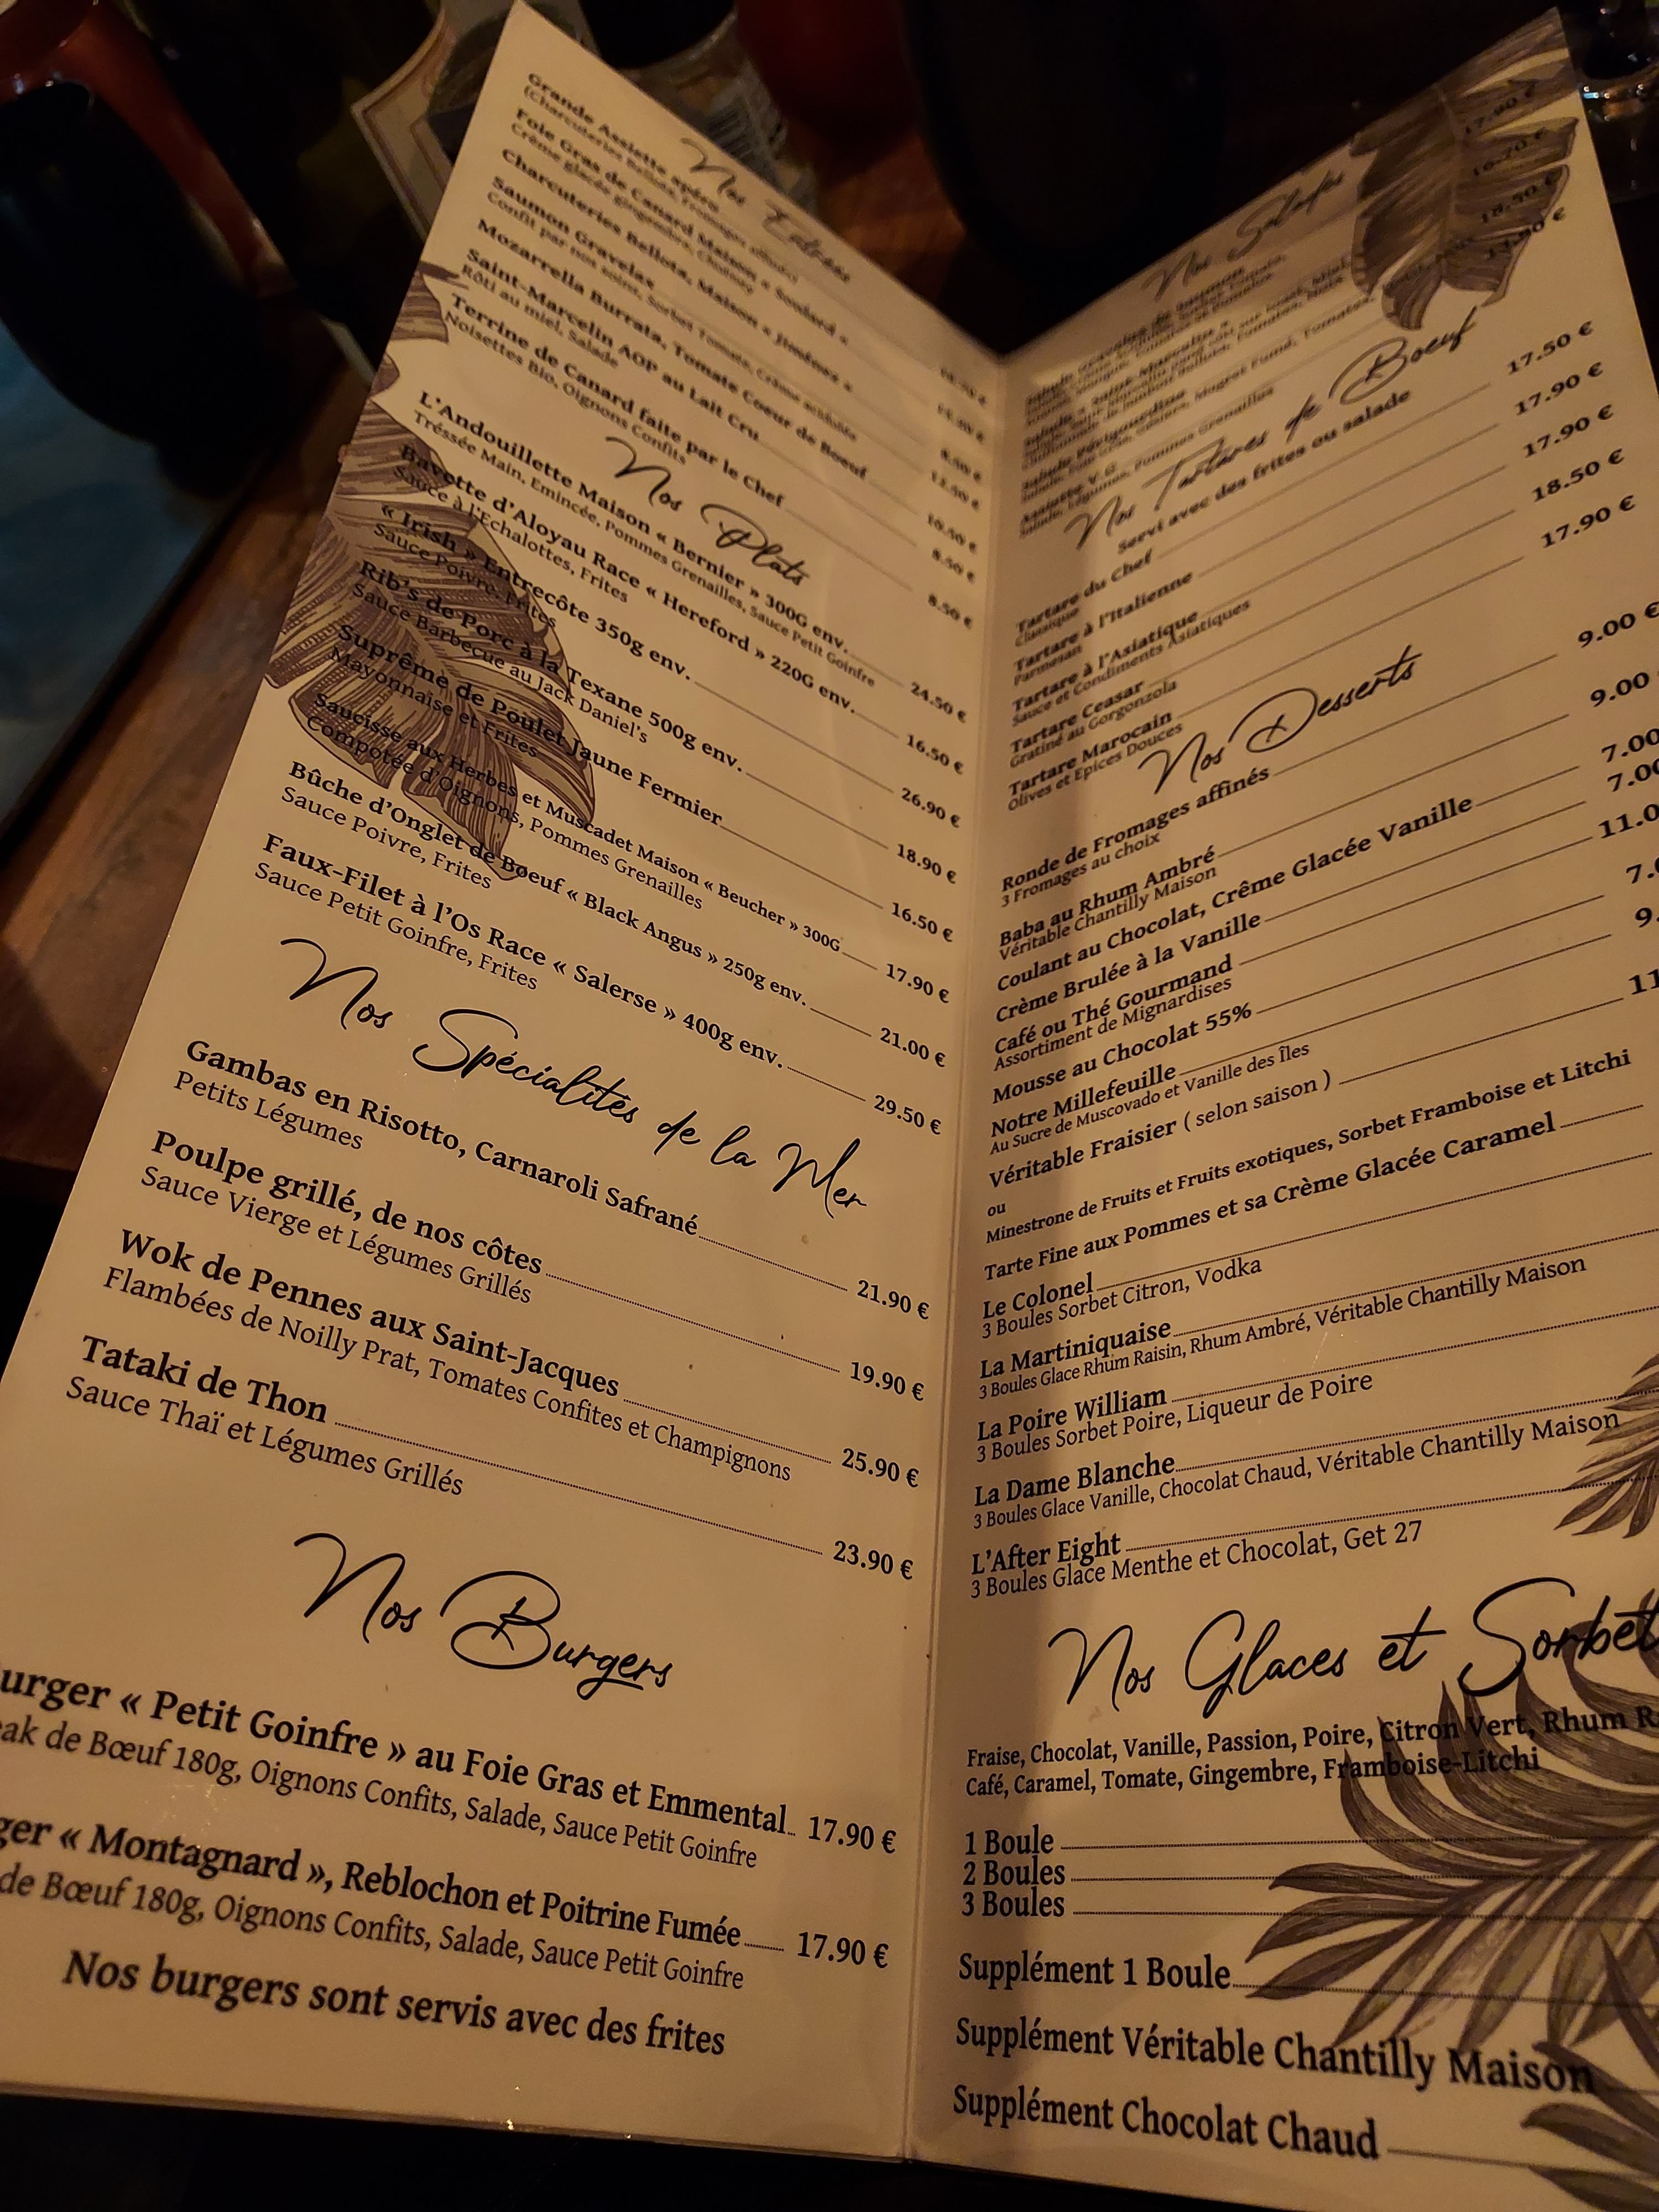 Nos Entrées
Grande Assiette apéro
(Charcuteries Bellota, Fromages affinés)
Foie Gras de Canard Maison « Soulard »
Crème glacée gingembre, Chutney
Charcuteries Bellota, Maison « Jiménes »
Saumon Gravelax
Confit par nos soins, Sorbet Tomate, Crème acidulée
Mozarrella Burrata, Tomate Coeur de Boeuf 12.50 €
Saint-Marcelin AOP au Lait Cru 10.50 €
Rôti au miel, Salade
Terrine de Canard faite par le Chef 8.50 €
Noisettes Bio, Oignons Confits
Nos Plats
L'Andouillette Maison « Bernier » 300G env. 24.50 €
Tréssée Main, Emincée, Pommes Grenailles, Sauce Petit Goinfre
Bavette d'Aloyau Race « Hereford » 220G env. 16.50 €
Sauce à l'Echalottes, Frites
« Irish » Entrecôte 350g env. 26.90 €
Sauce Poivre, Frites
Rib's de Porc à la Texane 500g env. 18.90 €
Sauce Barbecue au Jack Daniel's
Suprême de Poulet Jaune Fermier 16.50 €
Mayonnaise et Frites
Saucisse aux Herbes et Muscadet Maison « Beucher » 300G 17.90 €
Compotée d'Oignons, Pommes Grenailles
Bûche d'Onglet de Bœuf « Black Angus » 250g env. 21.00 €
Sauce Poivre, Frites
Faux-Filet à l'Os Race « Salerse » 400g env. 29.50 €
Sauce Petit Goinfre, Frites
Nos Spécialités de la Mer
Gambas en Risotto, Carnaroli Safrané 21.90 €
Petits Légumes
Poulpe grillé, de nos côtes 19.90 €
Sauce Vierge et Légumes Grillés
Wok de Pennes aux Saint-Jacques 25.90 €
Flambées de Noilly Prat, Tomates Confites et Champignons
Tataki de Thon 23.90 €
Sauce Thaï et Légumes Grillés
Nos Burgers
urger « Petit Goinfre » au Foie Gras et Emmental 17.90 €
eak de Bœuf 180g, Oignons Confits, Salade, Sauce Petit Goinfre
ger « Montagnard », Reblochon et Poitrine Fumée 17.90 €
de Bœuf 180g, Oignons Confits, Salade, Sauce Petit Goinfre
Nos burgers sont servis avec des frites
Nos Salades
Nos Tartares de Boeuf
Servi avec des frites ou salade
Tartare du Chef 17.50 €
Classique
Tartare à l'Italienne 17.90 €
Parmesan
Tartare à l'Asiatique 17.90 €
Sauce et Condiments Asiatiques
Tartare Ceasar 18.50 €
Gratiné au Gorgonzola
Tartare Marocain 17.90 €
Olives et Epices Douces
Nos Desserts
Ronde de Fromages affinés 9.00 €
3 Fromages au choix
Baba au Rhum Ambré 9.00
Véritable Chantilly Maison
Coulant au Chocolat, Crême Glacée Vanille 7.00
Crème Brulée à la Vanille 7.00
Café ou Thé Gourmand 11.0
Assortiment de Mignardises
Mousse au Chocolat 55% 7.
Notre Millefeuille 9.
Au Sucre de Muscovado et Vanille des Îles
Véritable Fraisier ( selon saison ) 11
ou
Minestrone de Fruits et Fruits exotiques, Sorbet Framboise et Litchi
Tarte Fine aux Pommes et sa Crème Glacée Caramel
Le Colonel
3 Boules Sorbet Citron, Vodka
La Martiniquaise
3 Boules Glace Rhum Raisin, Rhum Ambré, Véritable Chantilly Maison
La Poire William
3 Boules Sorbet Poire, Liqueur de Poire
La Dame Blanche
3 Boules Glace Vanille, Chocolat Chaud, Véritable Chantilly Maison
L'After Eight
3 Boules Glace Menthe et Chocolat, Get 27
Nos Glaces et Sorbet
Fraise, Chocolat, Vanille, Passion, Poire, Citron Vert, Rhum R
Café, Caramel, Tomate, Gingembre, Framboise-Litchi
1 Boule
2 Boules
3 Boules
Supplément 1 Boule
Supplément Véritable Chantilly Maison
Supplément Chocolat Chaud